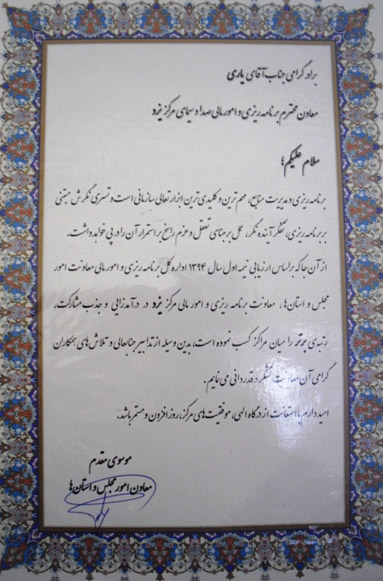 برادر گرامی جناب آقای یاری
معاون محترم برنامه ریزی و امور مالی صدا و سیمای مرکز یزد
سلام علیکم؛
برنامه ریزی و مدیریت منابع، مهم ترین و کلیدی ترین ابزار تعالی سازمانی است و تسری نگرش مبتنی
بر برنامه ریزی، تفکر آینده نگر، عمل بر مبنای تعقل و عزم راسخ بر استمرار آن را در پی خواهد داشت.
از آن جا که بر اساس ارزیابی نیمه اول سال ۱۳۹۴ اداره کل برنامه ریزی و امور مالی معاونت امور
مجلس و استان ها، معاونت برنامه ریزی و امور مالی مرکز یزد در درآمدزایی و جذب مشارکت،
رتبه ی برتر را میان مراکز کسب نموده است، بدین وسیله از تدابیر جنابعالی و تلاش های همکاران
گرامی آن معاونت تشکر و قدردانی می نمایم.
امید دارم با استعانت از درگاه الهی، موفقیت های مرکز، روز افزون و مستمر باشد.
موسوی مقدم
معاون امور مجلس و استان ها